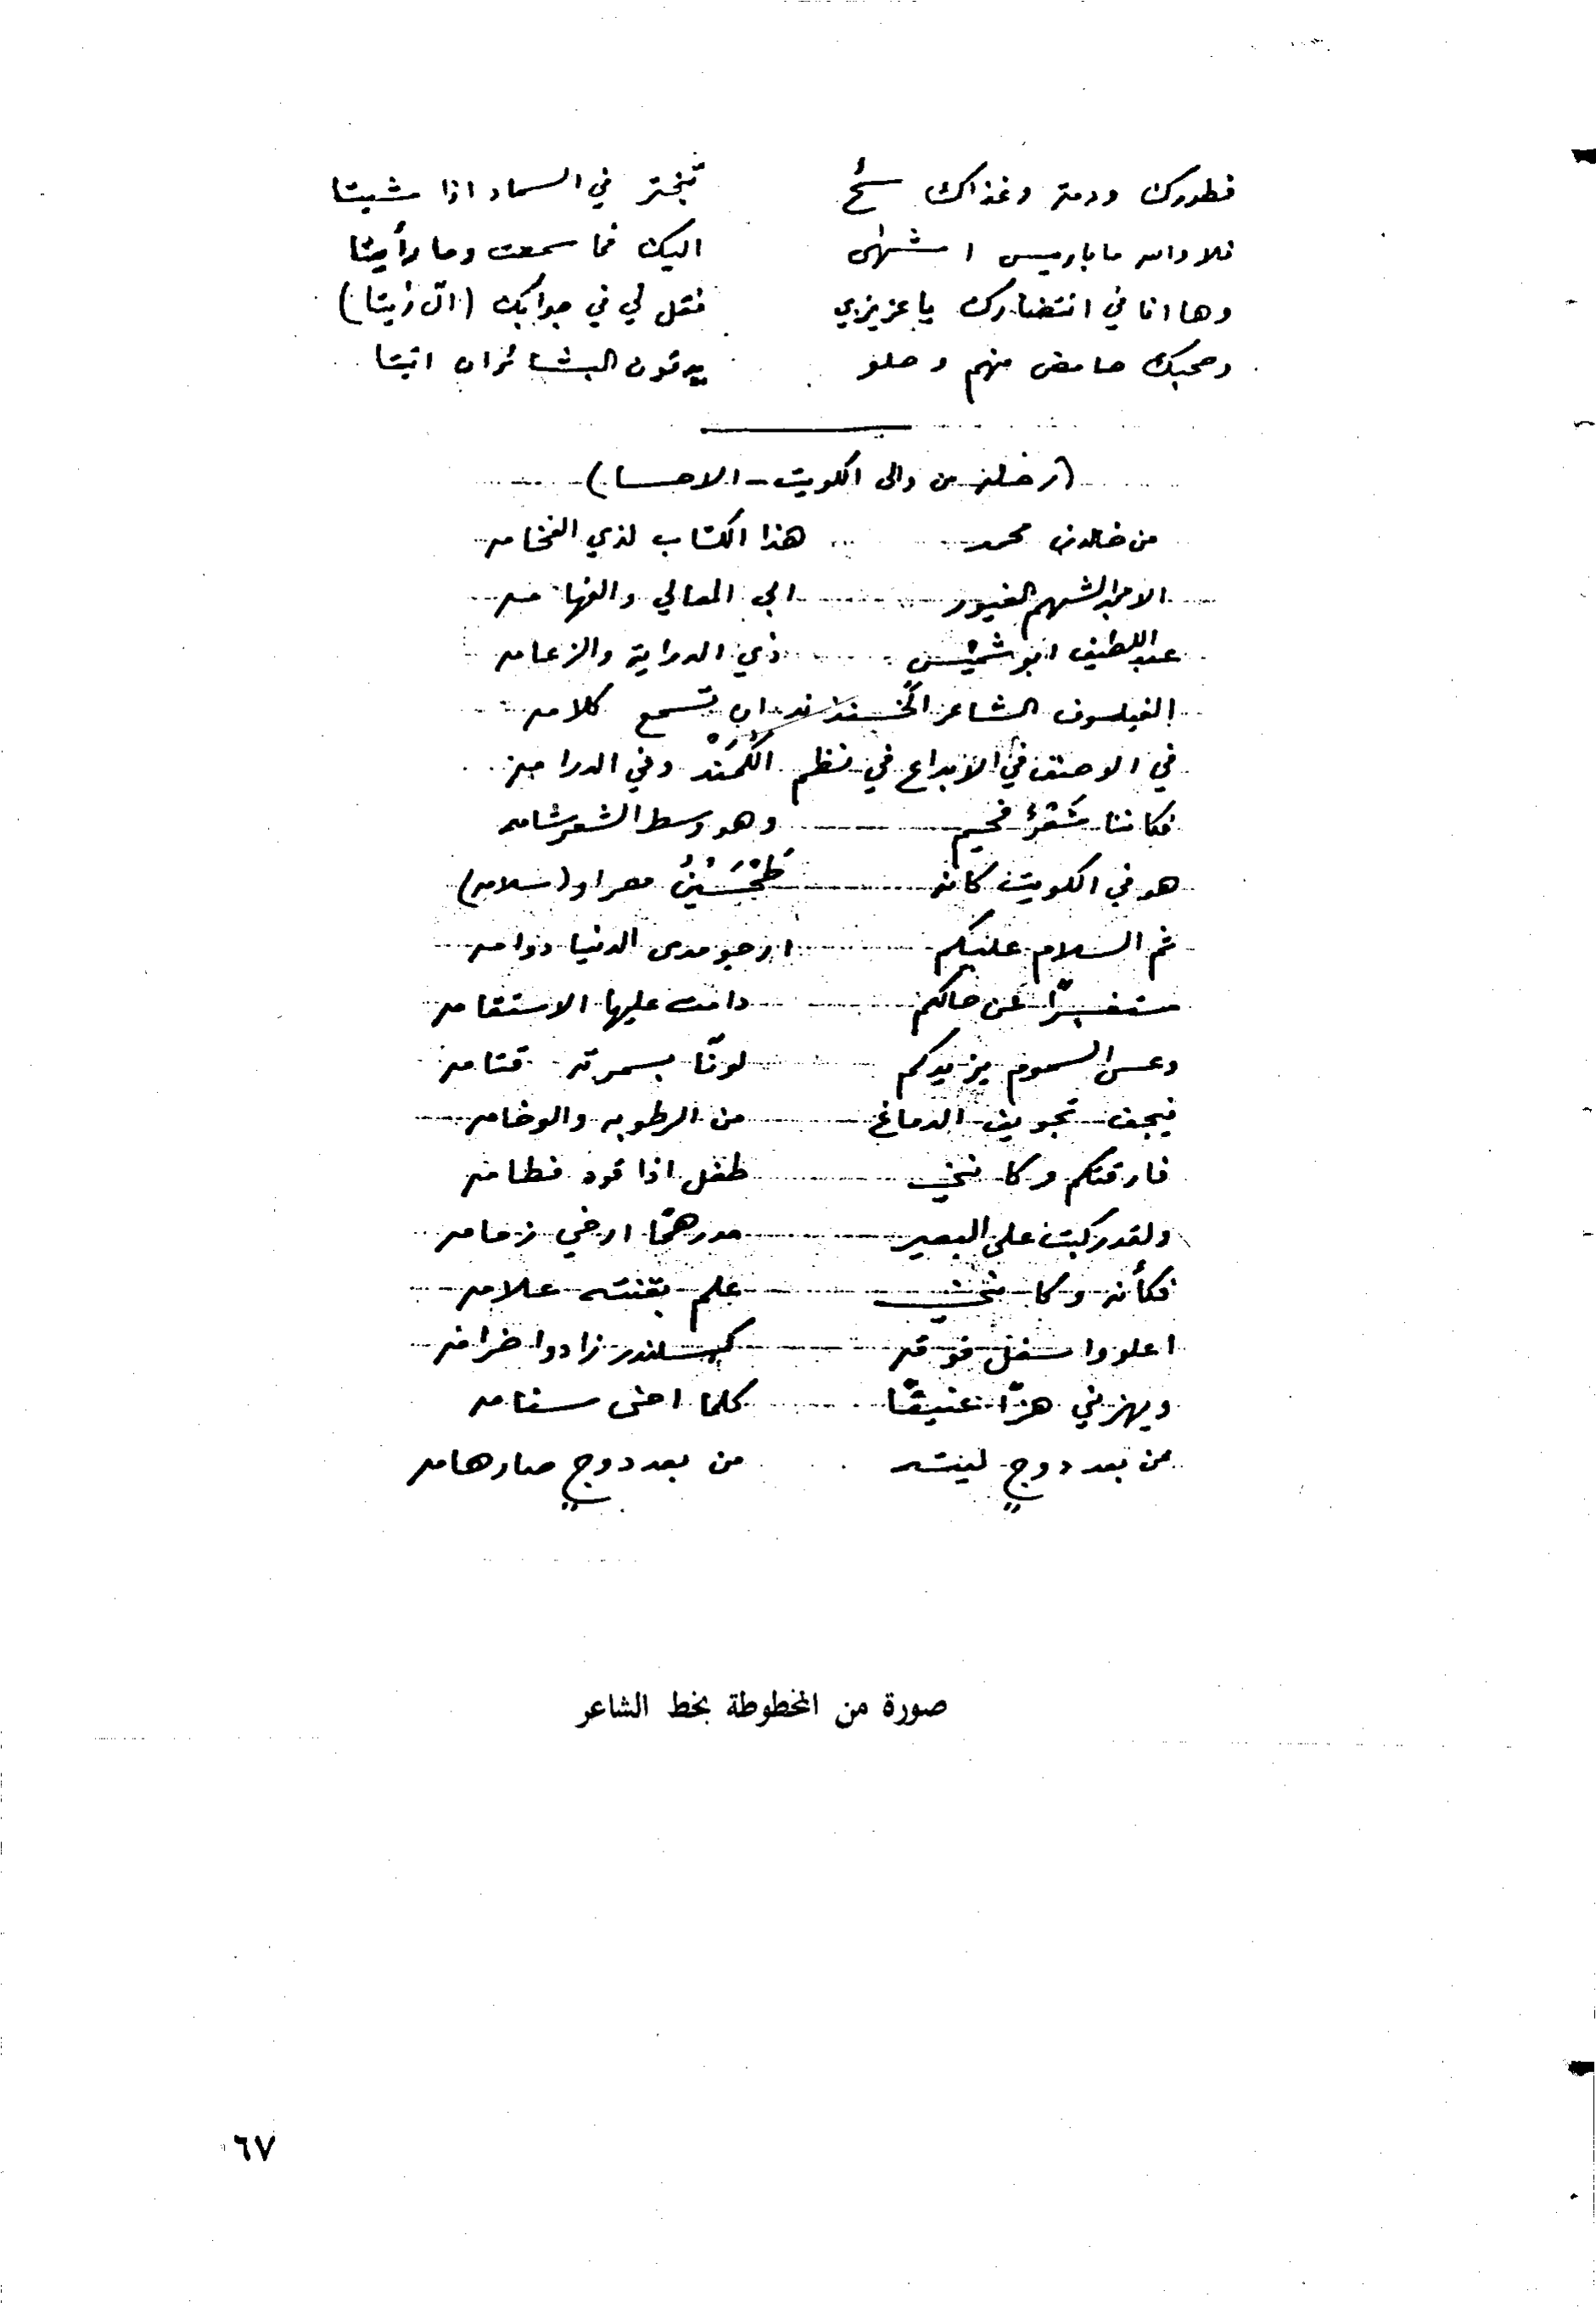 فطورك ودمة وغذاك سُحّ تبختر في السماد اذا مشيتا
فلا والله ما باريس اشهى اليك فما سمعت وما رأيتا
وها انا في انتضارك يا عزيزي فقل لي في جوابك (ال رُيتا)
وصحبك حامض منهم وحلو يدقون البشائر ان اتيتا
(رحلة من والى الكويت - الاحسا)
من خالد محمد هذا الكتاب لذي الفخامه
الامجد الشهم الغيور ابي المعالي والفهامه
عبد اللطيف ابو شميس ذي الدراية والزعامه
الفيلسوف الشاعر ان تسمع كلامه
في الوصف في الابداع في نظم وفي الدرامه
فكاننا فحيم وهو وسط الشعر شامه
هو في الكويت كانه مصر او (سلامه)
ثم السلام عليكم ارجو مدى الدنيا دوامه
مستفسرًا عن حالكم دامت عليها الاستقامه
وعسى السموم يزيدكم لونًا بسمرته قتامه
فيجف تجويف الدماغ من الرطوبه والوخامه
فارقتكم وكانني طفل اذا فطامه
ولقد ركبت على البعير مدرهمًا ارخي زمامه
فكأنه وكانني علم بقنته علامه
اعلو واسفل فوقه كسلندر زادوا ضرامه
ويهزني هزًا عنيفًا كلما احنى سنامه
من بعد دوجٍ لينته من بعد دوجٍ صار هامه
صورة من المخطوطة بخط الشاعر
٦٧